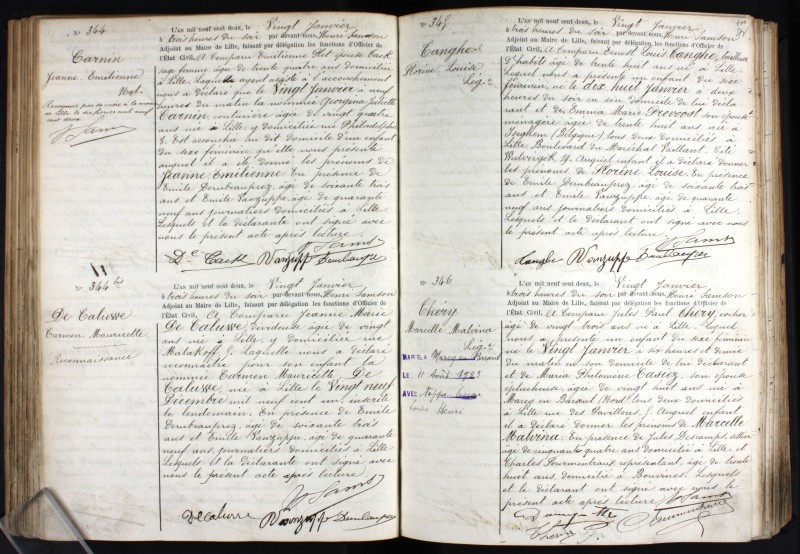 N° 344
Carnin
Jeanne Emilienne
Nat.
L'AN mil neuf cent deux, le Vingt Janvier
à trois heures du soir par-devant-nous, Henri Samson
Adjoint au Maire de Lille, faisant par délégation les fonctions d'Officier de
l'État Civil, A Comparu Emilienne
sage femme, âgée de trente quatre ans domiciliée
à Lille. Laquelle ayant assisté à l'accouchement
nous a déclaré que le Vingt Janvier à neuf
heures du matin la nommée Georgina Juliette
Carnin couturière âgée de vingt quatre
ans née à Lille y domiciliée rue Philadelphie
8. Est accouchée au dit domicile d'un enfant
du sexe féminin qu'elle nous présente
auquel il a été donné les prénoms de
Jeanne Emilienne En présence de
Emile Dernbeauprez, âgé de soixante trois
ans et Emile Vanzuppe, âgé de quarante
neuf ans journaliers domiciliés à Lille
Lesquels et la déclarante ont signé avec
nous le présent acte après lecture.
N° 344 bis
De Caluwe
Carmen Mauricette
Reconnaissance
L'AN mil neuf cent deux, le Vingt Janvier
à trois heures du soir par-devant-nous, Henri Samson
Adjoint au Maire de Lille, faisant par délégation les fonctions d'Officier de
l'État Civil, A Comparu Jeanne Marie
De Caluwe, dévideuse âgée de vingt
ans née à Lille, y domiciliée rue
Malakoff J. Laquelle nous a déclaré
reconnaître pour son enfant la
nommée Carmen Mauricette De
Caluwe, née à Lille le Vingt neuf
Décembre mil neuf cent un inscrite
le lendemain. En présence de Emile
Dernbeauprez, âgé de soixante trois
ans et Emile Vanzuppe, âgé de quarante
neuf ans, journaliers domiciliés à Lille
Lesquels et la déclarante ont signé avec
nous le présent acte après lecture
N° 345
Tanghe
Florine Louise
Lég.
L'AN mil neuf cent deux, le Vingt Janvier
à trois heures du soir par devant nous, Henri Samson
Adjoint au Maire de Lille, faisant par délégation les fonctions d'Officier de
l'État Civil, A Comparu Ernest Louis Tanghe, tailleur
d'habits âgé de trente huit ans né à Lille.
Lequel nous a présenté un enfant du sexe
féminin, né le dix huit Janvier à deux
heures du soir en son domicile de lui décla
rant et de Emma Marie Provoost son épouse
ménagère âgée de trente huit ans née à
Iseghem (Belgique) tous deux domiciliés à
Lille Boulevard du Maréchal Vaillant. Cité
19. Auquel enfant il a déclaré donner
les prénoms de Florine Louise. En présence
de Emile Dernbeauprez, âgé de soixante trois
ans et Emile Vanzuppe, âgé de quarante
neuf ans journaliers domiciliés à Lille.
Lesquels et le déclarant ont signé avec nous
le présent acte après lecture.
N° 346
Chéry
Marcelle Malvina
Lég.
MARIÉE A Marcq en Baroeul
LE 11 Août 1923
AVEC
Louis Henri
L'AN mil neuf cent deux, le Vingt Janvier
à trois heures du soir par-devant-nous, Henri Samson
Adjoint au Maire de Lille, faisant par délégation les fonctions d'Officier de
l'État Civil, A Comparu Jules Paul Chéry, cocher
âgé de vingt trois ans né à Lille. Lequel
nous a présenté un enfant du sexe féminin
née le Vingt Janvier à six heures et demie
du matin en son domicile de lui déclarant
et de Marie Philomène Casiez son épouse
éplucheuse, âgée de vingt huit ans née à
Marcq en Baroeul (Nord) tous deux domiciliés
à Lille rue des Pavillons, J. Auquel enfant
il a déclaré donner les prénoms de Marcelle
Malvina. En présence de Jules Descamps,
âgé de cinquante quatre ans domicilié à Lille et
Charles Fourmentraux, représentant, âgé de trente
huit ans, domicilié à Bouvines. Lesquels
et le déclarant ont signé avec nous le
présent acte après lecture